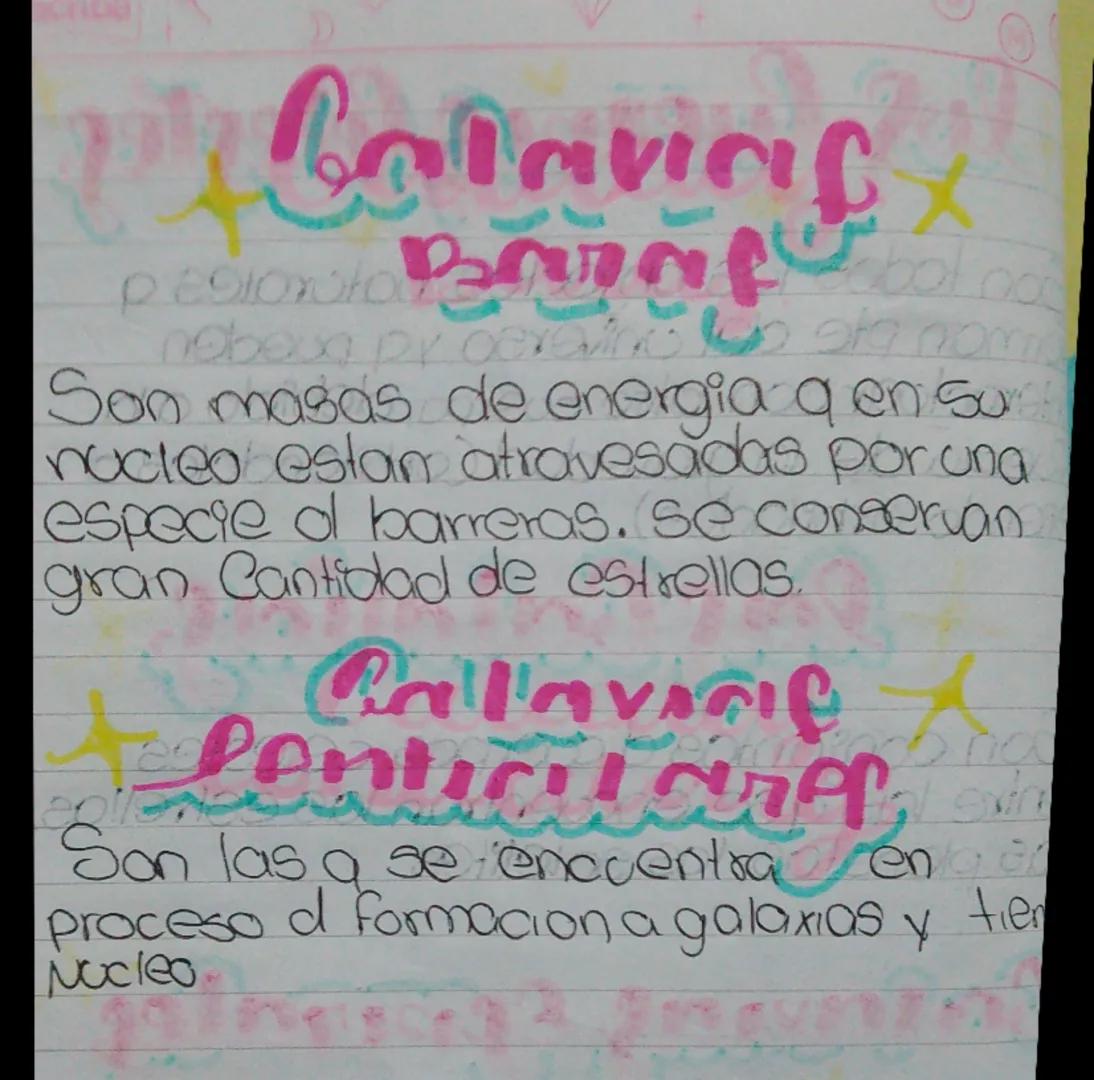 Galaxias
Baras
Son masas de energia q en su
nucleo estan atravesadas por una
especie d barreras. se conservan
gran Cantidad de estrellas.
Galaxias
Lenticulares
Son las q se encuentra en
proceso d formacion a galaxias y tien
Nucleo